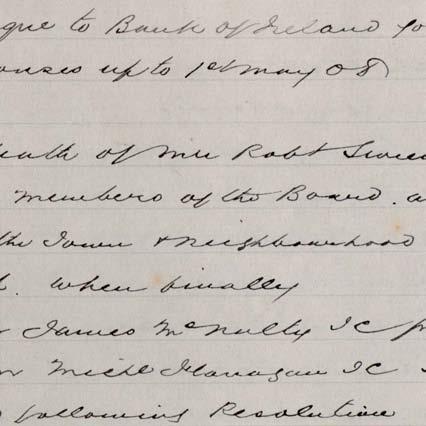 que to Bank of Ireland fo
onses up to 1st May 08
eath of Mr Robt Swee
members of the Board. a
the Town & Neighbourhood
. When finally
r James McNulty TC pr
or Michl Flanagan TC
following Resolution